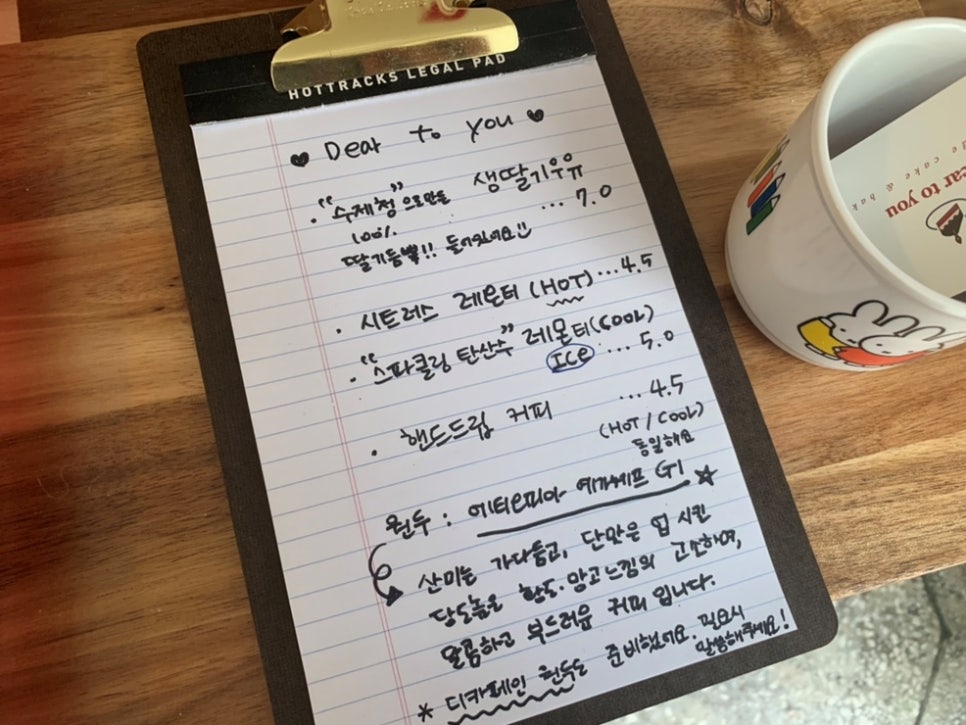 HOTTRACKS LEGAL PAD
♥ Dear to you ♥
· "수제청"으로만든 생딸기우유
100% ... 7.0
딸기듬뿍!! 들어있어요!!
· 시트러스 레몬티 (HOT) ...4.5
· "스파클링 탄산수" 레몬티(COOL)
ICE ... 5.0
· 핸드드립 커피 ... 4.5
(HOT / COOL)
동일해요
원두 : 에티오피아 예가체프 G1 ☆
산미는 가다듬고, 단맛은 업 시킨
당도높은 황도.망고느낌의 고소하며,
달콤하고 부드러운 커피입니다.
* 디카페인 원두도 준비했어요. 필요시
말씀해주세요!
ear to you
de cake & bak